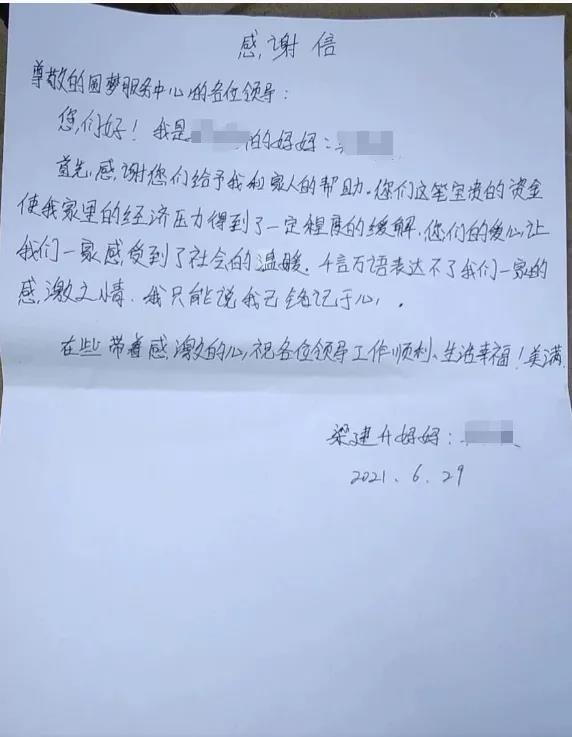 感谢信
尊敬的圆梦服务中心的各位领导：
您们好！我是 的妈妈：
首先，感谢您们给予我和家人的帮助。您们这笔宝贵的资金
使我家里的经济压力得到了一定程度的缓解，您们的爱心让
我们一家感受到了社会的温暖。千言万语表达不了我们一家的
感激之情．我只能说我已铭记于心，．
在些带着感激的心，祝各位领导工作顺利、生活幸福！美满
梁建升妈妈：
2021.6.29